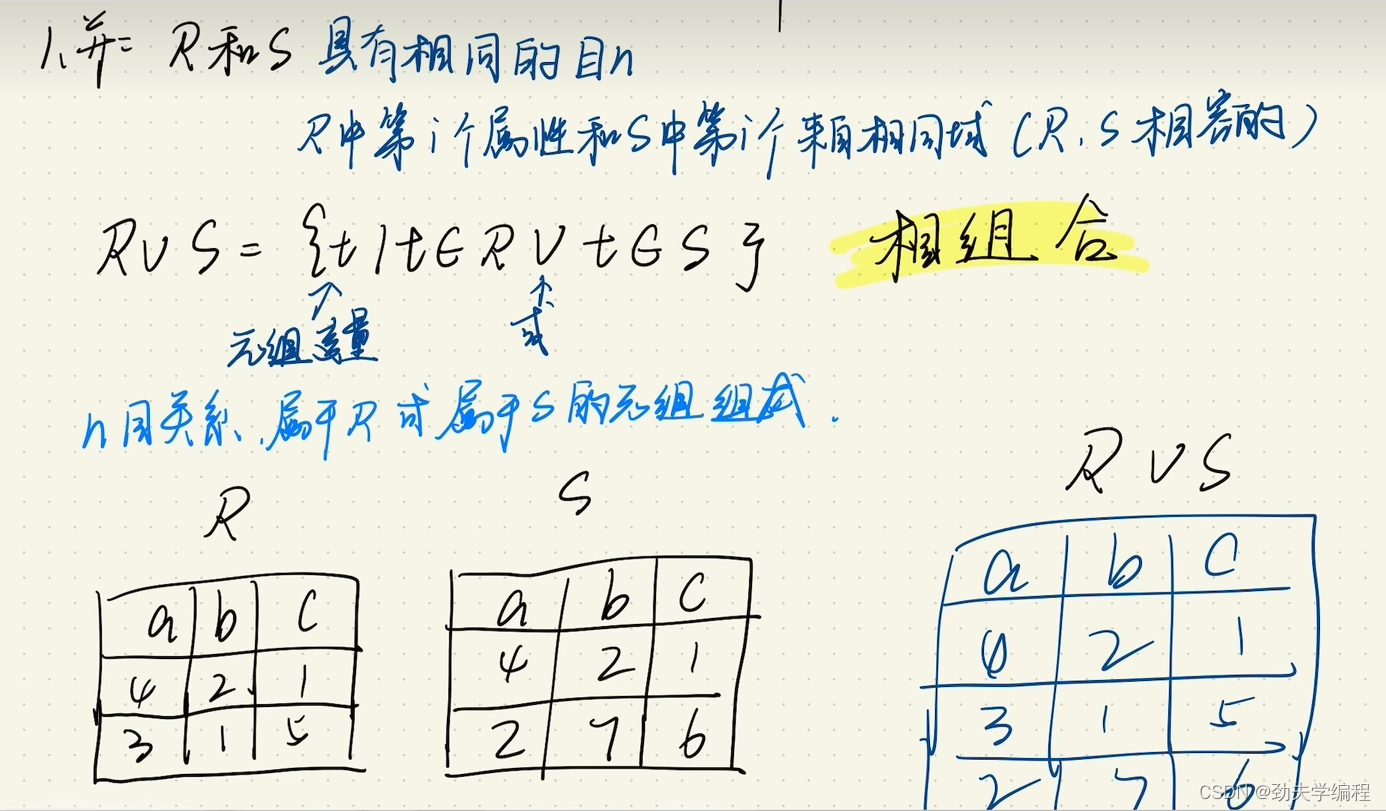 1、并= R和S 具有相同的目n
R中第i个属性和S中第i个来自相同域(R.S相容的)
R∪S={t|t∈R∨t∈S} 相组合
元组变量 或
n目关系.属于R或属于S的元组组成.
R S R∪S
a b c
4 2 1
3 1 5
a b c
4 2 1
2 7 6
a b c
4 2 1
3 1 5
2 7 6
CSDN @劲夫学编程